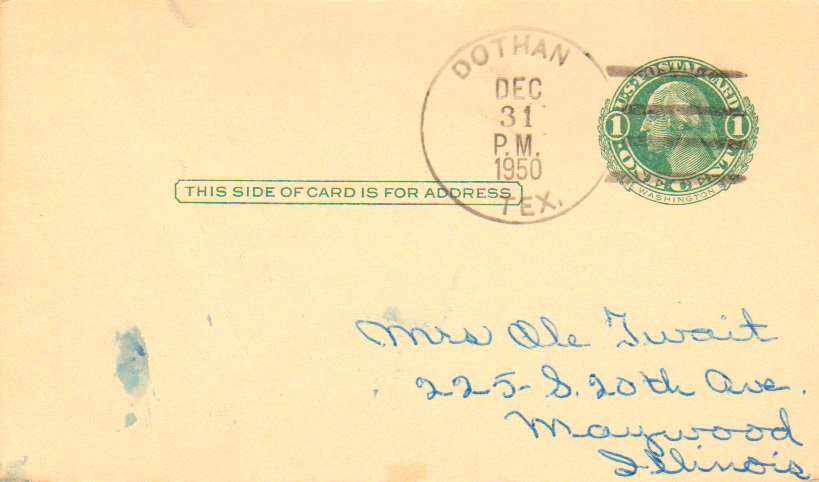 DOTHAN
DEC
31
P.M.
1950
TEX.
U.S. POSTAL CARD
1 1
ONE CENT
WASHINGTON
THIS SIDE OF CARD IS FOR ADDRESS
Mrs Ole Twait
225 S. 20th Ave.
Maywood
Illinois